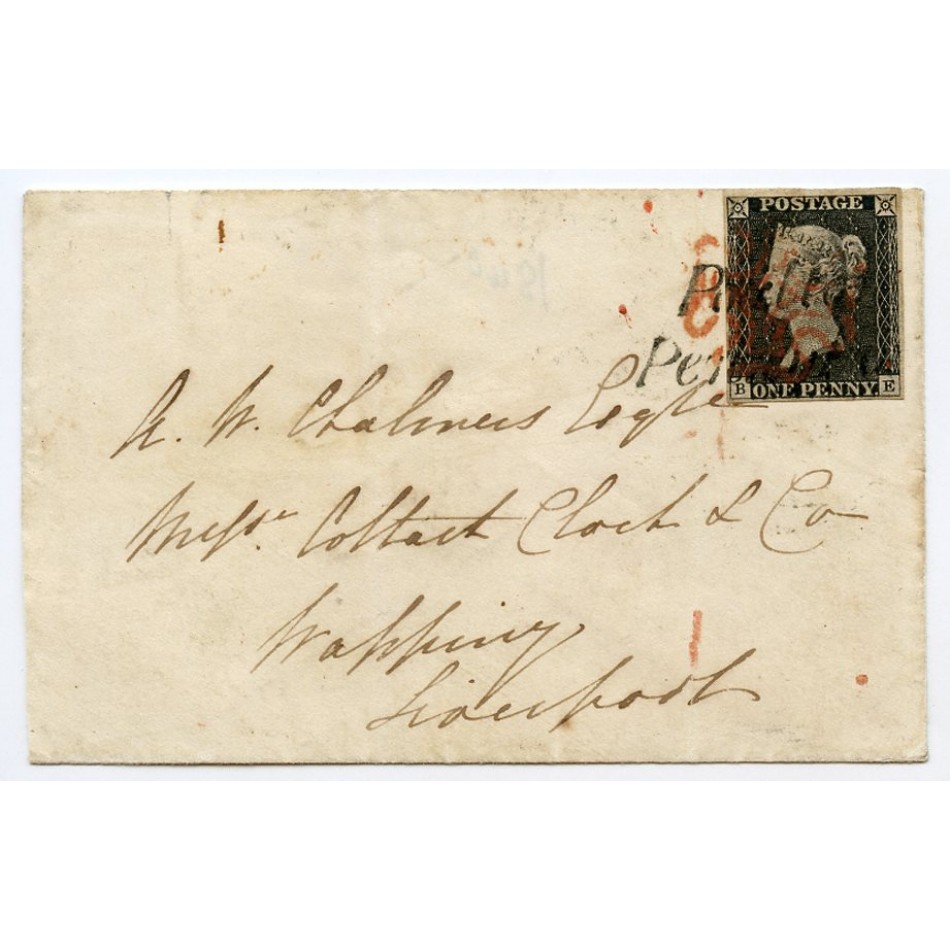 POSTAGE
ONE PENNY
B E
A. W. Chalmers Esqre
Messrs. Coltart Clock & Co
Wapping
Liverpool